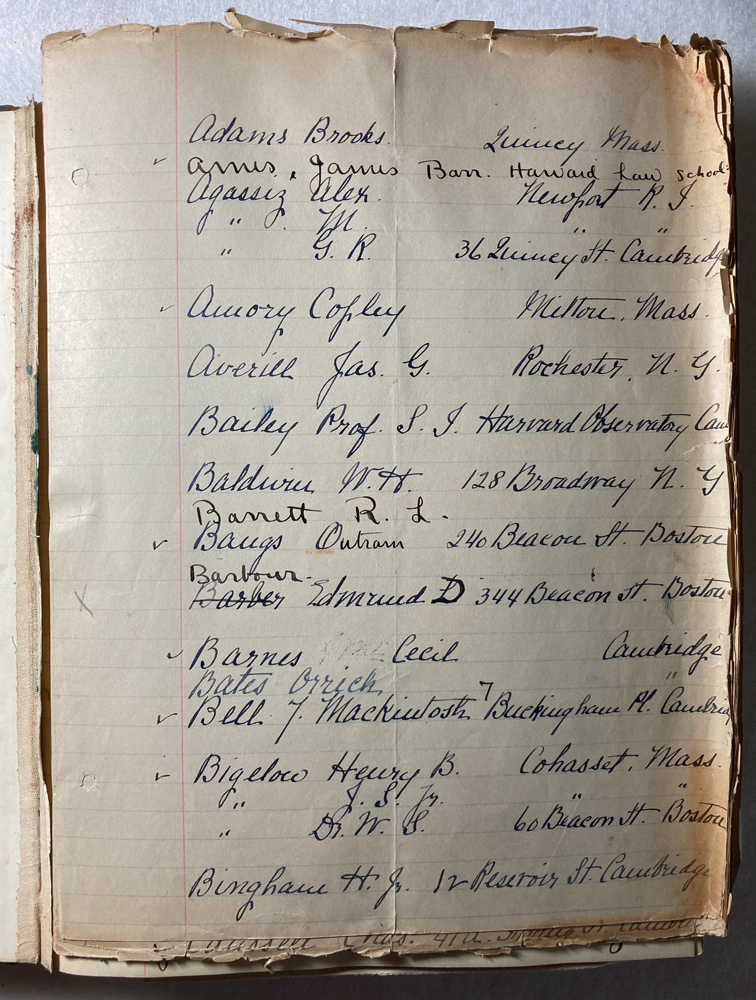 Adams Brooks. Quincy Mass.
Ames, James Barr. Harvard Law School
Agassiz Alex. Newport R. I.
" M. " "
" G. R. 36 Quincy St. Cambridge
Amory Copley Milton, Mass.
Averill Jas. G. Rochester, N. Y.
Bailey Prof. S. I. Harvard Observatory Cam
Baldwin W. H. 128 Broadway N. Y
Barrett R. L.
Bangs Outram 240 Beacon St. Boston
Barbour
Barber Edmund D 344 Beacon St. Boston
Barnes Cecil Cambridge
Bates Orrick "
Bell J. Mackintosh 7 Buckingham Pl. Cambrid
Bigelow Henry B. Cohasset, Mass.
" J. S. Jr. " "
" Dr. W. S. 60 Beacon St. Boston
Bingham H. Jr. 12 Reservoir St. Cambridge